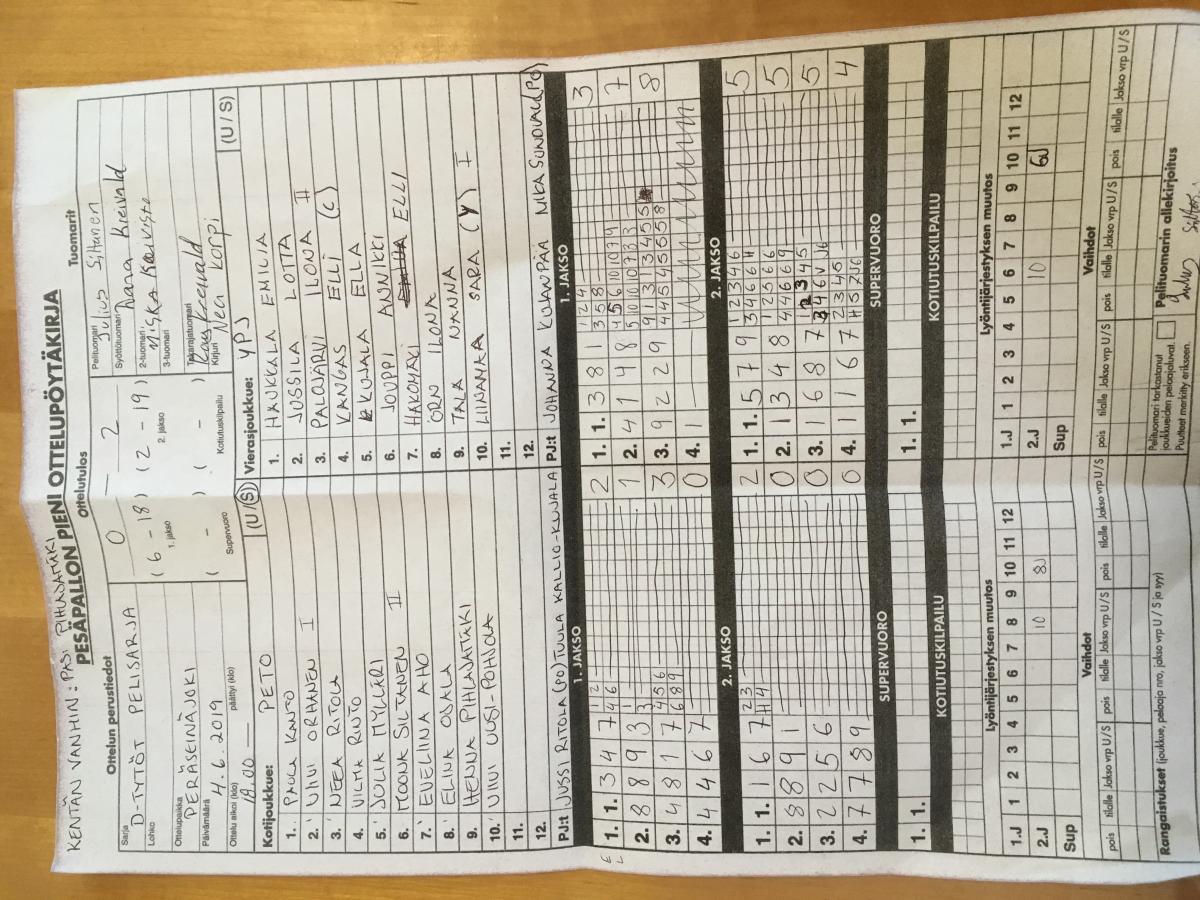 KENTÄN VANHIN: PASI PIHLAJAMÄKI
PESÄPALLON PIENI OTTELUPÖYTÄKIRJA
Ottelun perustiedot
Sarja D-TYTÖT PELISARJA
Lohko
Ottelupaikka PERÄSEINÄJOKI
Päivämäärä 4.6.2019
Ottelu alkoi (klo) 18.00 päättyi (klo)
Ottelutulos
0 — 2
(6 - 18) (2 - 19)
1. jakso 2. jakso
( - ) ( - )
Supervuoro Kotiutuskilpailu
Tuomarit
Pelituomari Julius Siltanen
Syöttötuomari
2-tuomari Miska Koivisto
3-tuomari
Takarajatuomari
Kirjuri Neli Korpi
Kotijoukkue: PETO (U/S)
1. PAULA KANTO
2. VIIVI ORHANEN I
3. NEEA RITOLA
4. VILMA RINTO
5. JULIA MYLLÄRI
6. MOONA SILTANEN II
7. EVELIINA AHO
8. ELINA OJALA
9. HENNA PIHLAJAMÄKI
10. VIIVI UUSI-POHJOLA
11.
12.
PJ:t JUSSI RITOLA (PO) TUULA KALLIO-KUJALA
Vierasjoukkue: YPJ (U/S)
1. HAUKKALA EMILIA
2. JUSSILA LOTTA
3. PALOJÄRVI ILONA II
4. KANGAS ELLI (C)
5. KUJALA ELLA
6. JOUPPI ANNIKKI
7. HAKOMÄKI ELLI
8. ÖRN ILONA
9. TALA NANNA
10. LIINAMAA SARA (Y) I
11.
12.
PJ:t JOHANNA KUJANPÄÄ MIKA SUNDVALL (PO)
1. JAKSO
1. 1. 3 4 7 1 2 4 6 2
2. 8 8 9 3 3 1
3. 4 8 1 7 4 5 6 6 8 9 3
4. 4 4 6 7 0
2. JAKSO
1. 1. 1 6 7 2 3 H 4 2
2. 8 8 9 1 0
3. 2 2 5 6 0
4. 7 7 8 9 0
SUPERVUORO
1. 1.
KOTIUTUSKILPAILU
1. JAKSO
1. 1. 3 8 1 1 2 4 3 5 8 3
2. 4 1 4 8 7
3. 9 2 2 9 8
4. 1
2. JAKSO
1. 1. 5 7 9 1 2 3 4 6 3 4 6 6 H 5
2. 1 3 4 8 1 2 5 6 6 4 4 6 6 9 5
3. 1 6 8 7 5
4. 1 1 6 7 2 3 4 5 4
SUPERVUORO
1. 1.
KOTIUTUSKILPAILU
Lyöntijärjestyksen muutos
1.J 1 2 3 4 5 6 7 8 9 10 11 12
2.J 10 8J
Sup
Vaihdot
pois tilalle Jakso vrp U/S pois tilalle Jakso vrp U/S
Lyöntijärjestyksen muutos
1.J 1 2 3 4 5 6 7 8 9 10 11 12
2.J 10 6J
Sup
Vaihdot
pois tilalle Jakso vrp U/S pois tilalle Jakso vrp U/S pois tilalle Jakso vrp U/S
Rangaistukset (joukkue, pelaaja nro, jakso vrp U / S ja syy)
Pelituomari tarkastanut
joukkueiden pelaajaluvat.
Puutteet merkitty erikseen.
Pelituomarin allekirjoitus